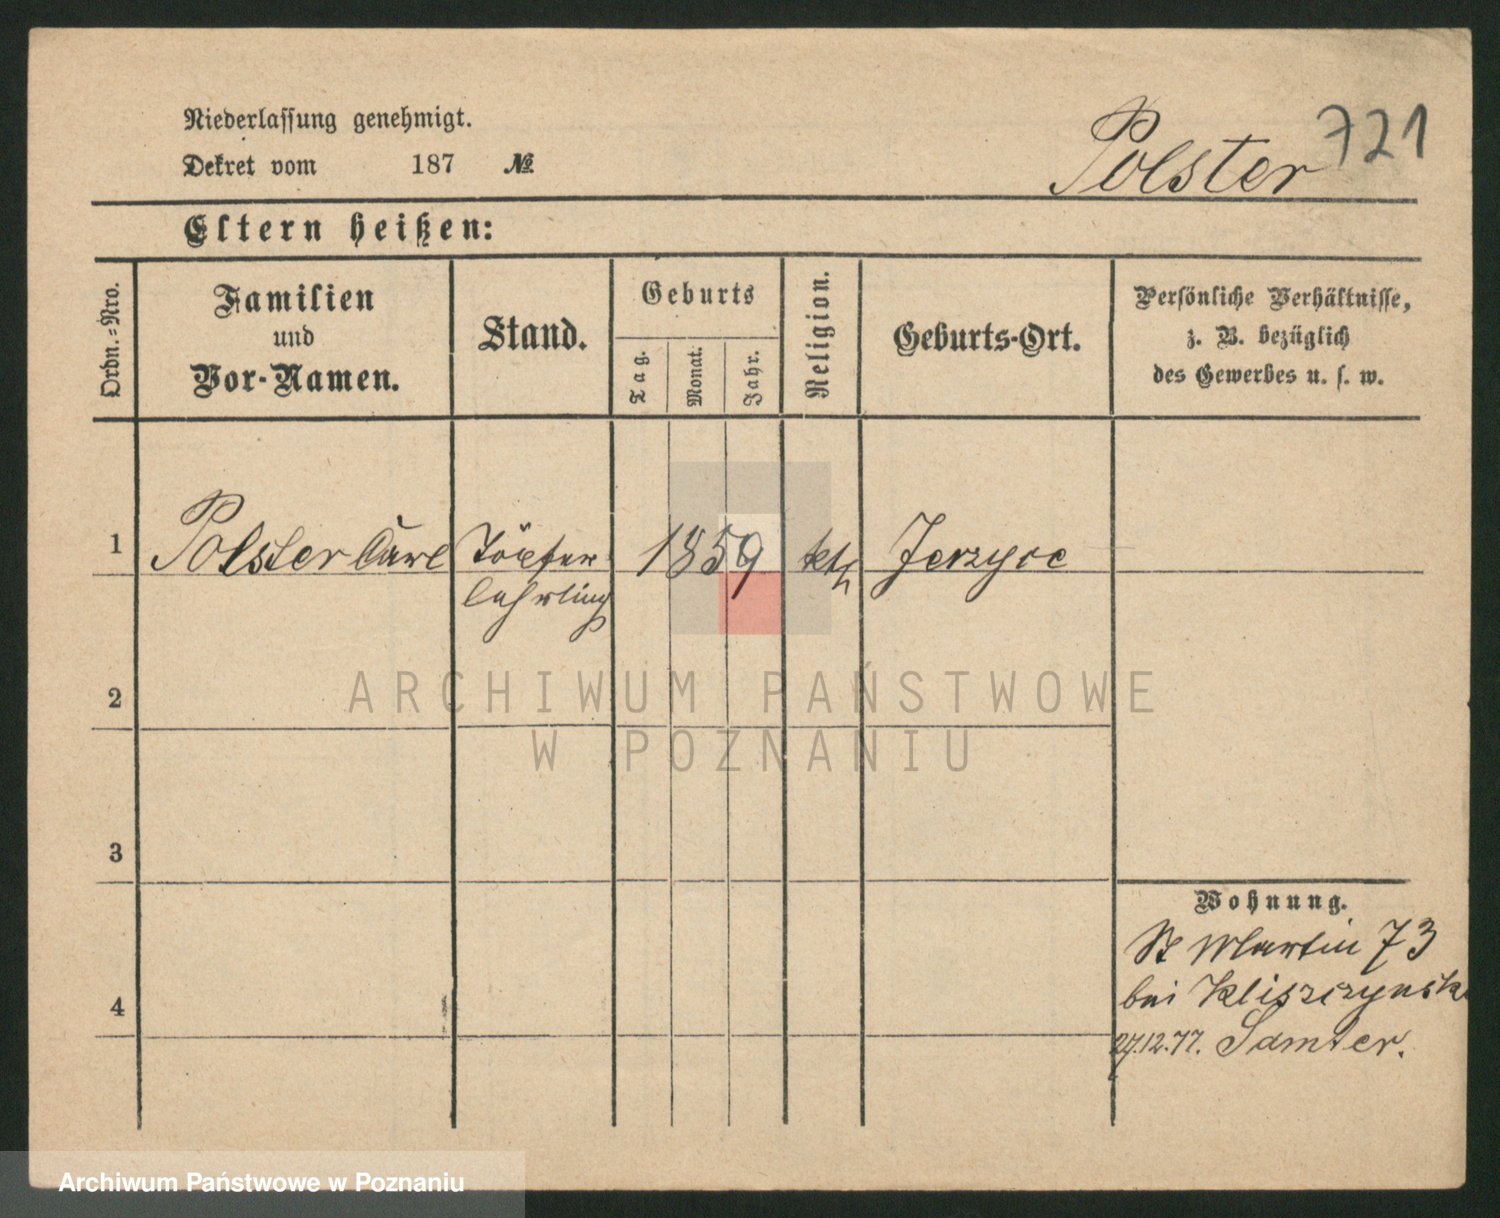 Niederlassung genehmigt.
Dekret vom 187 №
Polster 721
Eltern heißen:
Ordn.=Nro.
Familien
und
Vor-Namen.
Stand.
Geburts
Tag.
Monat.
Jahr.
Religion.
Geburts-Ort.
Persönliche Verhältnisse,
z. B. bezüglich
des Gewerbes u. s. w.
1 Polster Carl Töpfer 1859 kth Jerzyce
lehrling
2
ARCHIWUM PAŃSTWOWE
W POZNANIU
3
Wohnung.
St Martin 73
bei Kliszczynski
4
27.12.77. Samter.
Archiwum Państwowe w Poznaniu